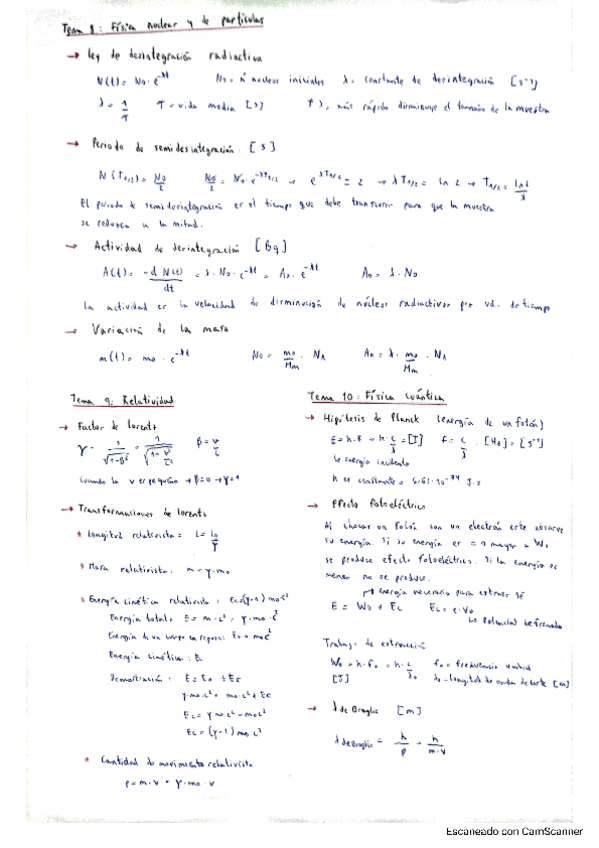 Tema 8: Física nuclear y de partículas
→ Ley de desintegración radiactiva
N(t) = N₀ · e^-λt    N₀ = nº nucleos iniciales    λ = constante de desintegración [s⁻¹]
λ = 1/T    T = vida media [s]    ↑λ, más rápido disminuye el tamaño de la muestra
→ Periodo de semidesintegración [s]
N(T1/2) = N₀/2    N₀/2 = N₀ · e^-λT1/2 → e^λT1/2 = 2 → λT1/2 = ln 2 → T1/2 = ln 2/λ
El periodo de semidesintegración es el tiempo que debe transcurrir para que la muestra
se reduzca a la mitad.
→ Actividad de desintegración [Bq]
A(t) = -d N(t)/dt = λ · N₀ · e^-λt = A₀ · e^-λt    A₀ = λ · N₀
La actividad es la velocidad de disminución de núcleos radiactivos por ud. de tiempo
→ Variación de la masa
m(t) = m₀ · e^-λt    N₀ = m₀/Mm · NA    A₀ = λ · m₀/Mm · NA
Tema 9: Relatividad
→ Factor de lorentz
γ = 1/√1-β² = 1/√1-v²/c²    β = v/c
Cuando la v es pequeña → β=0 → γ=1
→ Transformaciones de lorentz
* Longitud relativista: L = L₀/γ
* Masa relativista: m = γ · m₀
* Energía cinética relativista: Ec = (γ-1) m₀ · c²
Energía total: E = m · c² = γ · m₀ · c²
Energía de un cuerpo en reposo: E₀ = m₀c²
Energía cinética: Ec
Demostración: E = E₀ + Ec
γ · m₀ · c² = m₀ · c² + Ec
Ec = γ m₀ c² - m₀c²
Ec = (γ-1) m₀ c²
* Cantidad de movimiento relativista
p = m · v = γ · m₀ · v
Tema 10: Física cuántica
→ Hipótesis de Planck (energía de un fotón)
E = h · f = h · c/λ = [J]    f = c/λ · [Hz] = [s⁻¹]
↳ energía incidente
h es constante = 6.61 · 10⁻³⁴ J·s
→ Efecto fotoeléctrico
Al chocar un fotón con un electrón este absorve
su energía. Si su energía es = o mayor a W₀
se produce efecto fotoeléctrico. Si la energía es
menor no se produce.
↱ energía necesaria para extraer
E = W₀ + Ec    Ec = e · V₀
↳ Potencial de frenado
Trabajo de extracción
W₀ = h · f₀ = h · c/λ₀    f₀ = frecuencia umbral
[J]    λ₀ = longitud de onda de corte [m]
→ λ de Broglie [m]
λ de Broglie = h/p = h/m·v
Escaneado con CamScanner